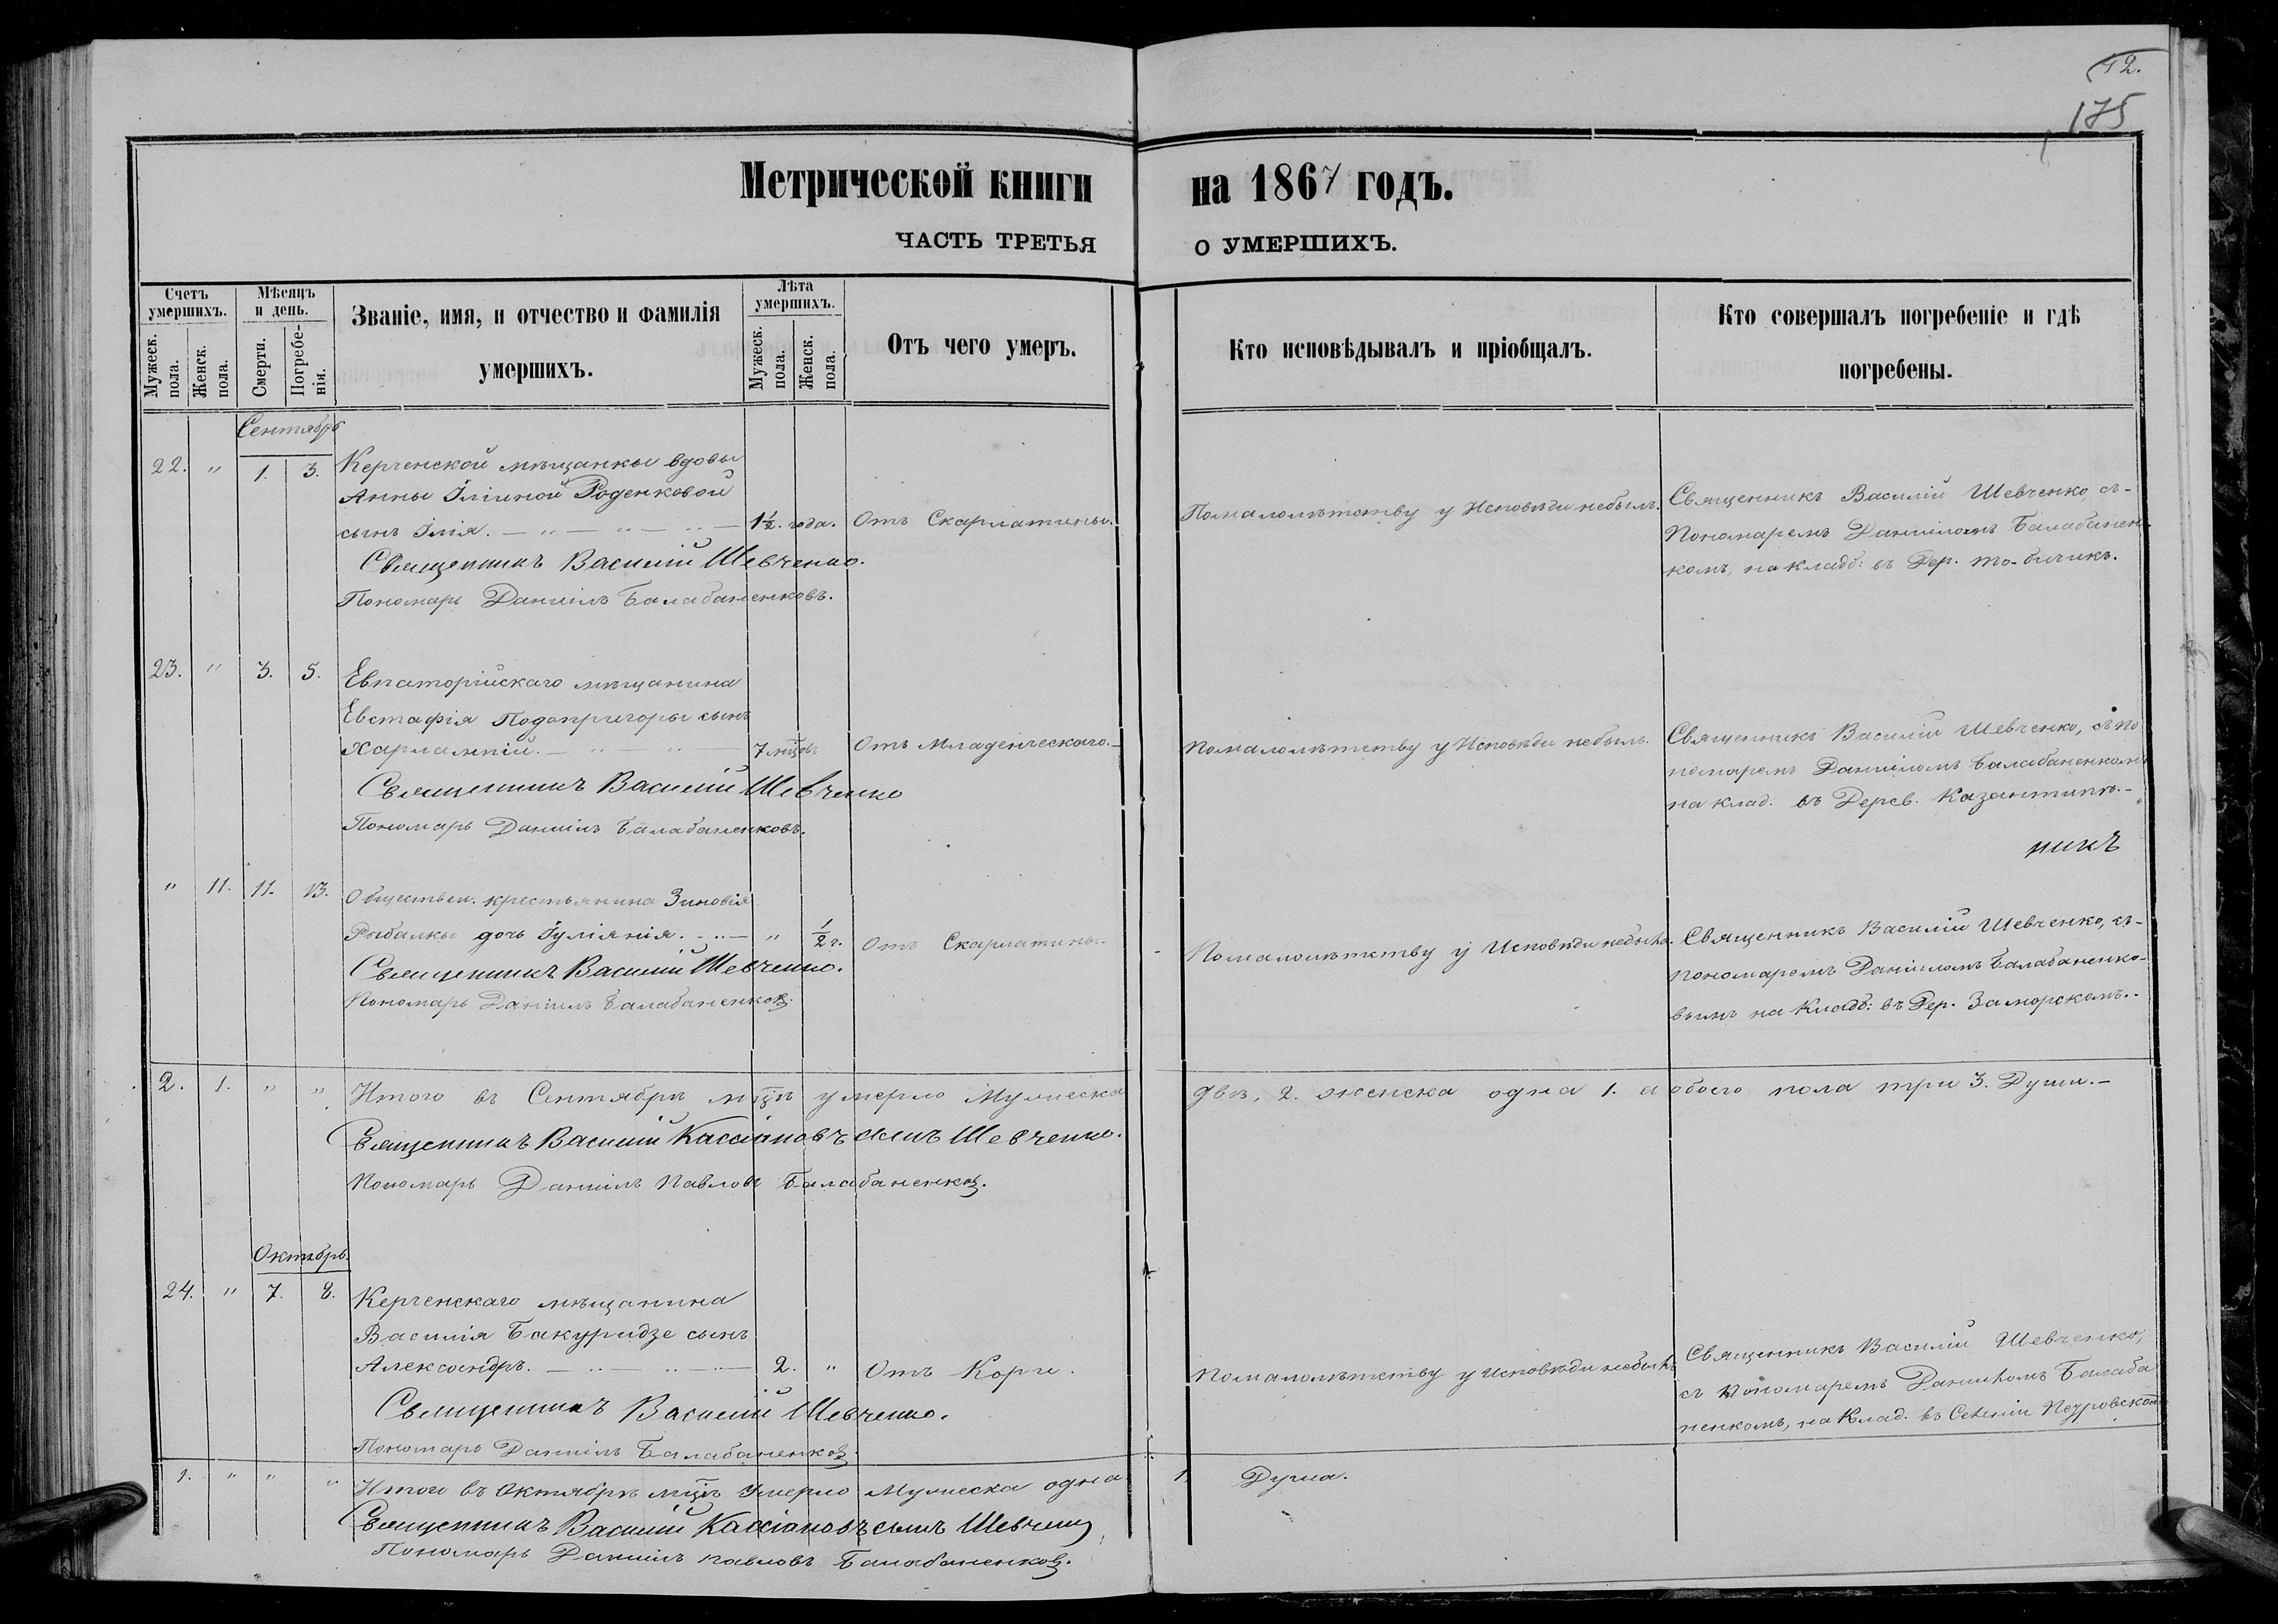 12.
175
Метрической книги на 1867 годъ.
ЧАСТЬ ТРЕТЬЯ О УМЕРШИХЪ.
Счетъ умершихъ.
Мужеск. пола.
Женск. пола.
Мѣсяцъ и день.
Смерти.
Погребе-нія.
Званіе, имя, и отчество и фамилія
умершихъ.
Лѣта умершихъ.
Мужеск. пола.
Женск. пола.
Отъ чего умеръ.
Кто исповѣдывалъ и пріобщалъ.
Кто совершалъ погребеніе и гдѣ
погребены.
Сентябрь
22. " 1. 3. Керченской мѣщанки вдовы
Анны Іліиной Роденковой
сынъ Ілія. 1½. года. Отъ Скарлатины.
Священникъ Василій Шевченко.
Пономарь Даніилъ Балабаненковъ.
Помалолѣтству у Исповѣди небылъ.
Священникъ Василій Шевченко съ-
Пономаремъ Даніиломъ Балабанен-
комъ, на кладб: въ Дер. то-бичикъ.
23. " 3. 5. Евпаторійскаго мѣщанина
Евстафія Подопригоры сынъ
Харлампій. 7 мцовъ Отъ Младенческаго.
Священникъ Василій Шевченко
Пономарь Даніилъ Балабаненковъ.
помалолѣтству у Исповѣди небылъ.
Священникъ Василій Шевченко, съ по
номаремъ Даніиломъ Балабаненкомъ
на клад. въ Дерев. Казантипъ.-
никъ
" 11. 11. 13. Обществен. крестьянина Зиновія
Рыбалки дочь Іуліянія. " ½ г. Отъ Скарлатины.
Священникъ Василій Шевченко.
Пономарь Даніилъ Балабаненков.
Помалолѣтству у Исповѣди небыла.
Священникъ Василій Шевченко, съ-
пономаремъ Даніиломъ Балабаненко-
вымъ на Кладб: въ Дер. Заморскомъ.
2. 1. " " Итого въ Сентябрѣ мцѣ умерло Мужеска двѣ, 2. женска одна 1. а обоего пола три 3. Души.-
Священникъ Василій Кассіановъ сынъ Шевченко.
Пономарь Даніилъ Павловъ Балабаненков.
Октябрь.
24. " 7. 8. Керченскаго мѣщанина
Василія Бакуридзе сынъ
Александръ. 2. " Отъ Корги.
Священникъ Василій Шевченко.
Пономарь Даніилъ Балабаненков.
помалолѣтству у исповѣди небылъ
Священникъ Василій Шевченко,
съ пономаремъ Даниломъ Балаба
ненкомъ, на Клад. въ Селеніи Петровском
1. " " " Итого въ Октябрѣ мцѣ Умерло Мужеска одна 1 Душа.
Священникъ Василій Кассіановъ сынъ Шевченко
Пономарь Даніилъ павловъ Балабаненков.